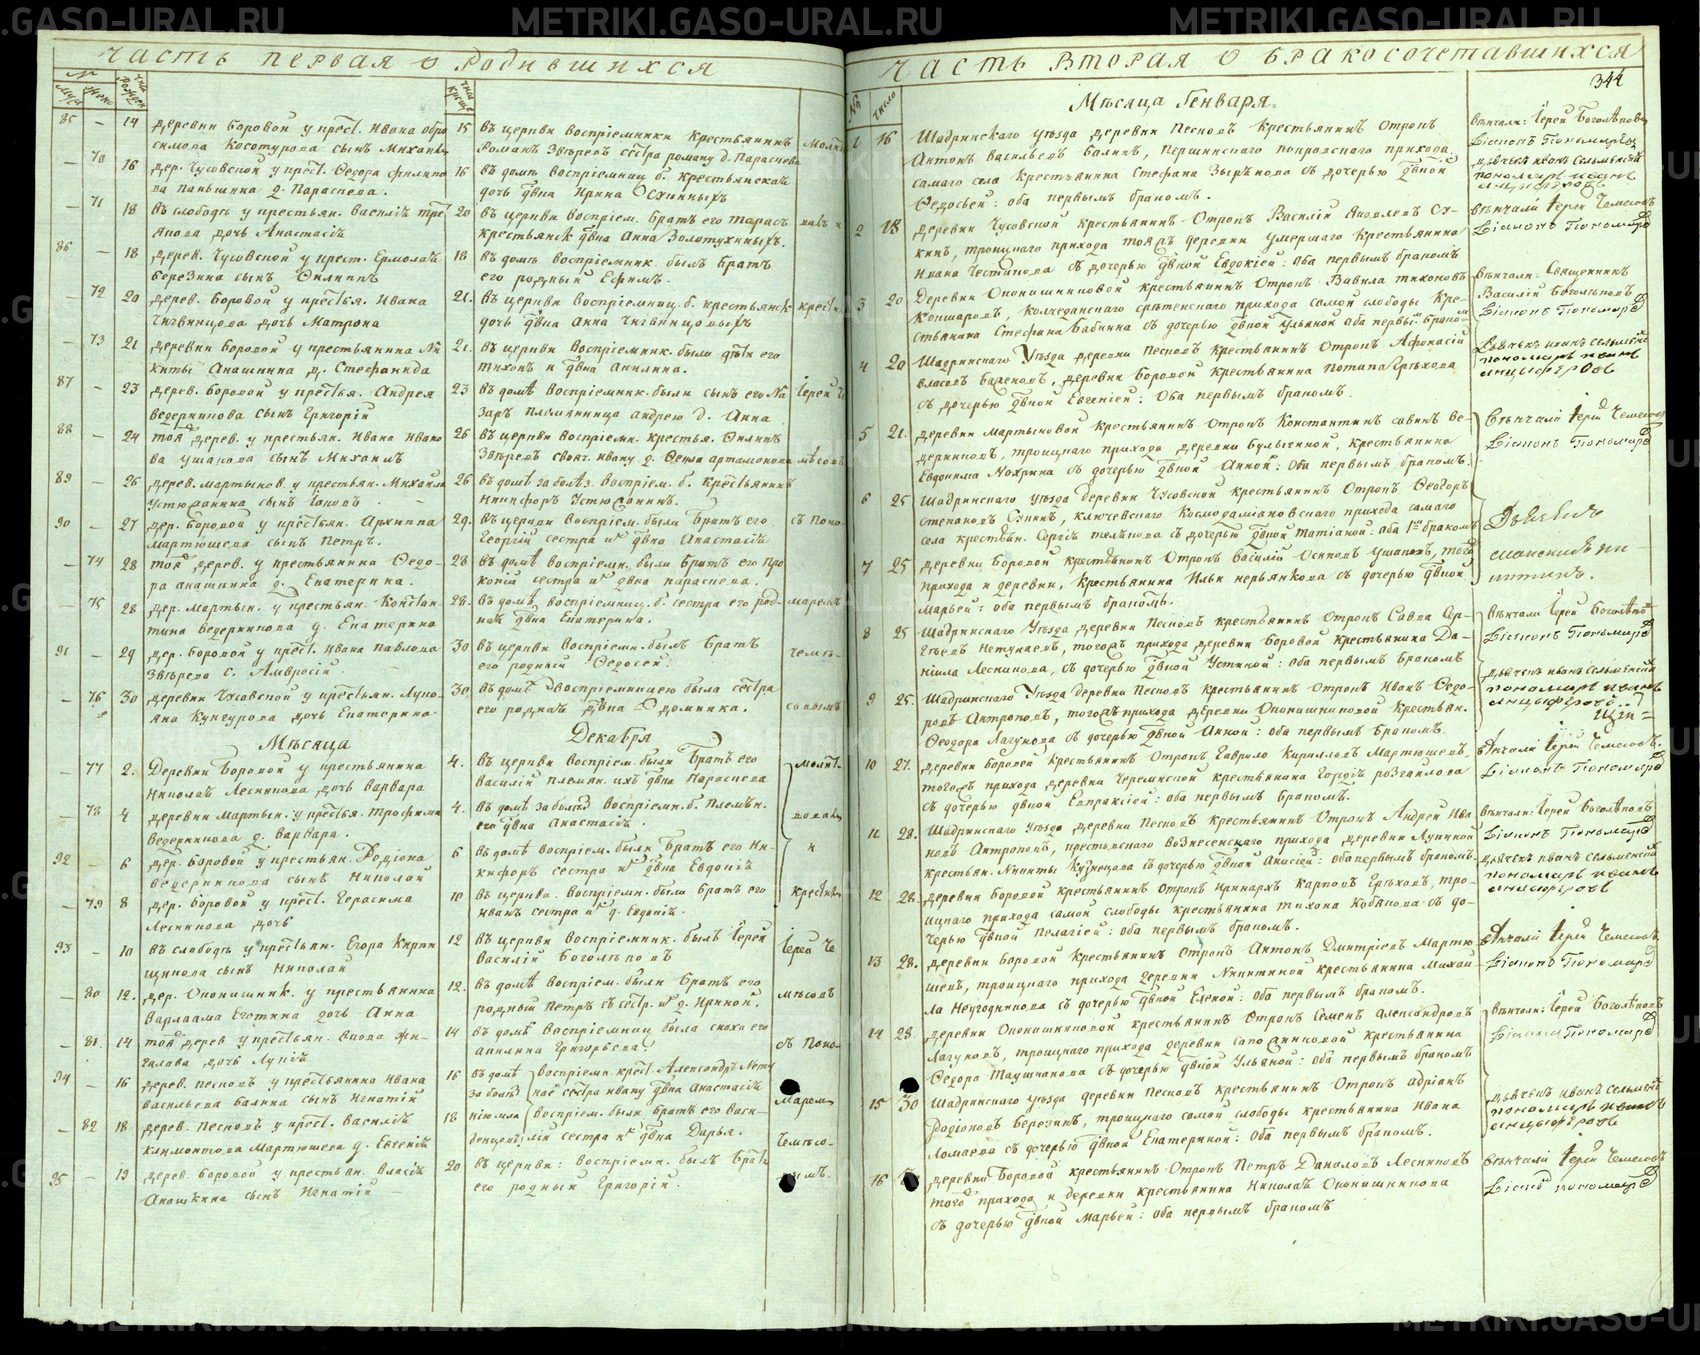 METRIKI.GASO-URAL.RU
METRIKI.GASO-URAL.RU
Часть первая о родившихся
№
85 — 14 деревни Боровой у крест. Ивана
Косотурова сынъ Михаилъ
15 въ церкви воспріемники крестьянинъ
Романъ Звѣревъ сестра роману д. Параскева
— 70 16 дер. Чусовской у крест. Ѳедора
Паньшина д. Параскева.
16 въ домѣ воспріемниц. б. крестьянская
дочь дѣвка Ирина
— 71 18 въ слободѣ у крестьян. Василія
дочь Анастасія
20 въ церкви воспріем. братъ его Тарасъ
крестьянск дѣвка Анна Золотухиныхъ.
86 — 18 дерев. Чусовской у крест. Ермолая
Березина сынъ Филиппъ
18 въ домѣ воспріемник. былъ братъ
его родный Ефимъ.
— 72 20 дерев. Боровой у крестья. Ивана
Чигвинцова дочь Матрона
21. въ церкви воспріемниц. б. крестьянск
дочь дѣвка Анна Чигвинцовыхъ
— 73 21 деревни Боровой у крестьянина Ни
киты Анашкина д. Стефанида
21. въ церкви воспріемник. были дѣти его
Тихонъ и дѣвка Акилина.
87 — 23 дерев. Боровой у крестья. Андрея
Ведерникова сынъ Григорій
23 въ домѣ воспріемник. были сынъ его На
заръ племянница андрею д. Анна
Іерей Че
88 — 24 той дерев. у крестьян. Ивана Ивано
ва Ушакова сынъ Михаилъ
26 въ церкви воспріемн. крестья. Филипъ
Звѣревъ ивану д. Артамонова
89 — 26 дерев. Мартынов. у крестьян. Михаила
Устюжанина сынъ Іаковъ
26 въ домѣ за болѣз. воспріем. б. крестьянинъ
Никифоръ Устюжанинъ.
90 — 27 дер. Боровой у крестьян. Архиппа
Мартюшева сынъ Петръ.
29. въ церкви воспріем. были братъ его
Георгій сестра и дѣвка Анастасія
съ Поно-
— 74 28 той дерев. у крестьянина Ѳедо-
ра Анашкина д. Екатерина.
28 въ домѣ воспріемн. были братъ его Про
копій сестра и дѣвка Параскева.
— 75 28 дер. Мартын. у крестьян. Констан-
тина Ведерникова д. Екатерина
28. въ домѣ воспріемниц. б. сестра его род-
ная дѣвка Екатерина.
маремъ
91 — 29 дер. Боровой у крест. Ивана Павлова
Звѣрева с. Амвросій
30 въ церкви воспріемн. былъ братъ
его родный Ѳедосей.
— 76 30 деревни Чусовской у крестьян. Луко-
яна Кунгурова дочь Екатерина
30. въ домѣ воспріемницею была сестра
его родная дѣвка Домника.
Мѣсяца Декабря
— 77 2. Деревни Боровой у крестьянина
Николая Лескинова дочь Варвара
4. въ церкви воспріем. были братъ его
Василій племян. ихъ дѣвка Параскева
— 78 4 деревни Мартын. у крестья. Трофима
Ведерникова д. Варвара.
4. въ домѣ за болѣз воспріемн. б. племян.
его дѣвка Анастасія.
92 — 6 дер. Боровой у крестьян. Родіона
Ведерникова сынъ Николай
6 въ домѣ воспріем. были братъ его Ни-
кифоръ сестра и дѣвка Евдокія
и
— 79 8 дер. Боровой у крест. Герасима
Лескинова дочь
10 въ церкви. воспріемн. были братъ его
Иванъ сестра и д. Евдокія.
93 — 10 въ слободѣ у крестьян. Егора Кирпи
щикова сынъ Николай
12 въ церкви воспріемник. былъ Іерей
Василій Боголѣповъ
Іерей Че
— 80 12. дер. Оконишник. у крестьянина
Варлаама дочь Анна
12. въ домѣ воспріем. были братъ его
родный Петръ съ сестр. д. Ириной.
— 81. 14 той дерев у крестьян. Якова Жи-
галова дочь Лукія
14 въ домѣ воспріемниц была сноха его
Акилина Григорьева
съ Поно-
94 — 16 дерев. Песковъ у крестьянина Ивана
Васильева Балина сынъ Игнатій
16 въ домѣ воспріемн. крест. Александръ
за болѣз сестра ивану дѣвка Анастасія
Марем
— 82 18 дерев. Песковъ у крест. Василія
Климонтова Мартюшева д. Евгенія
18 воспріем. были братъ его Васи-
лій сестра и дѣвка Дарья.
95 — 19 дерев. Боровой у крестьян. Власія
Анашкина сынъ Игнатій
20 въ церкви: воспріемн. былъ братъ
его родный Григорій.
Часть вторая о бракосочетавшихся
344
№ число
Мѣсяца Генваря
1 16 Шадринскаго уѣзда деревни Песковъ крестьянинъ отрокъ
Антонъ Васильевъ Балинъ, Першинскаго покровскаго прихода
самаго села крестьянина Стефана Зырянова съ дочерью дѣвкой
Ѳедосьей: оба первымъ бракомъ.
Вѣнчали: Іерей Боголѣповъ
Діаконъ Пономаревъ
дьячекъ иванъ Сельменскій
пономарь иванъ
анцыферовъ
2 18 деревни Чусовской крестьянинъ отрокъ Василій Яковлевъ Су-
кинъ, троицкаго прихода тояжъ деревни умершаго крестьянина
Ивана Честикова съ дочерью дѣвкой Евдокіей: оба первымъ бракомъ
вѣнчали Іерей Чемесовъ
Діаконъ Пономаревъ
3 20 Деревни Оконишниковой крестьянинъ отрокъ Вавила Тихоновъ
Кокшаровъ, Колчеданскаго срѣтенскаго прихода самой слободы кре-
стьянина Стефана Бабкина съ дочерью дѣвкой Ульяной оба первы. браком
Вѣнчали: Священникъ
Василій Боголѣповъ
Діаконъ Пономаревъ
4 20 Шадринскаго Уѣзда деревни Песковъ крестьянинъ отрокъ Афонасій
Власовъ Баженовъ, деревни Боровой крестьянина Потапа Грѣхова
съ дочерью дѣвкой Евгеніей: Оба первымъ бракомъ.
дьячекъ иванъ сельменскій
пономарь иванъ
анцыферовъ
5 21. деревни Мартыновой крестьянинъ отрокъ Константинъ Савинъ Ве-
дерниковъ, троицкаго прихода деревни Булыгиной, крестьянина
Евдокима Вохрина съ дочерью дѣвкой Анной: оба первымъ бракомъ.
Вѣнчали Іерей Чемесовъ
Діаконъ Пономаревъ
6 25 Шадринскаго уѣзда деревни Чусовской крестьянинъ отрокъ Ѳеодоръ
Степановъ Сукинъ, ключевскаго Космодаміановскаго прихода самаго
села крестьян. Сергія Телѣкова съ дочерью дѣвкой Татіаной: оба 1мъ бракомъ
7 25 деревни Боровой крестьянинъ отрокъ Василій Осиповъ Ушаковъ, того
прихода и деревни, крестьянина Ильи съ дочерью дѣвкой
Марьей: оба первымъ бракомъ.
8 25 Шадринскаго Уѣзда деревни Песковъ крестьянинъ отрокъ Савва Сер-
гѣевъ Нетунаевъ, тогожъ прихода деревни Боровой крестьянина Да-
ніила Лескинова, съ дочерью дѣвкой Устиной: оба первымъ бракомъ
Вѣнчали Іерей Боголѣповъ
Діаконъ Пономаревъ
9 25. Шадринскаго Уѣзда деревни Песковъ крестьянинъ отрокъ Иванъ Ѳедо-
ровъ Антроповъ, тогожъ прихода деревни Оконишниковой крестьян.
Ѳеодора Лагунова съ дочерью дѣвкой Анной: оба первымъ бракомъ.
дьячекъ иванъ сельменскій
пономарь иванъ
анцыферовъ
10 27. деревни Боровой крестьянинъ отрокъ Гаврило Кириловъ Мартюшевъ,
тогожъ прихода деревни Черемисской крестьянина Георгія Розгайлова
съ дочерью дѣвкой Евпраксіей: оба первымъ бракомъ.
Вѣнчали Іерей Чемесовъ.
Діаконъ Пономаревъ
11 28. Шадринскаго уѣзда деревни Песковъ крестьянинъ отрокъ Андрей Ива
новъ Антроповъ, крестовскаго вознесенскаго прихода деревни Лукиной
крестьян. Никиты Кузнецова съ дочерью дѣвкой Анисіей: оба первымъ бракомъ.
Вѣнчали: Іерей Боголѣповъ
Діаконъ Пономаревъ
12 28. деревни Боровой крестьянинъ отрокъ Иринархъ Карповъ Грѣховъ, тро-
ицкаго прихода самой слободы крестьянина Тихона Кабакова съ до-
черью дѣвкой Пелагіей: оба первымъ бракомъ.
дьячекъ иванъ сельменскій
пономарь иванъ
анцыферовъ
13 28. деревни Боровой крестьянинъ отрокъ Антонъ Дмитріевъ Мартю
шевъ, троицкаго прихода деревни Никитиной крестьянина Михай
ла Неугодникова съ дочерью дѣвкой Еленой: оба первымъ бракомъ.
Вѣнчали Іерей Чемесовъ
Діаконъ Пономаревъ
14 28. деревни Оконишниковой крестьянинъ отрокъ Семенъ Александровъ
Лагуновъ, троицкаго прихода деревни крестьянина
Ѳедора Таушканова съ дочерью дѣвкой Ульяной: оба первымъ бракомъ
Вѣнчали: Іерей Боголѣповъ
Діаконъ Пономаревъ
15 30 Шадринскаго уѣзда деревни Песковъ крестьянинъ отрокъ Адріанъ
Родіоновъ Березинъ, троицкаго самой слободы крестьянина Ивана
Ломаева съ дочерью дѣвкой Екатериной: оба первымъ бракомъ.
дьячекъ иванъ сельменскій
пономарь иванъ
анцыферовъ
16 деревни Боровой крестьянинъ отрокъ Петръ Даниловъ Лескиновъ
того прихода и деревни крестьянина Николая Оконишникова
съ дочерью дѣвкой Марьей: оба первымъ бракомъ
вѣнчали Іерей Чемесовъ
Діаконъ пономаревъ
METRIKI.GASO-URAL.RU